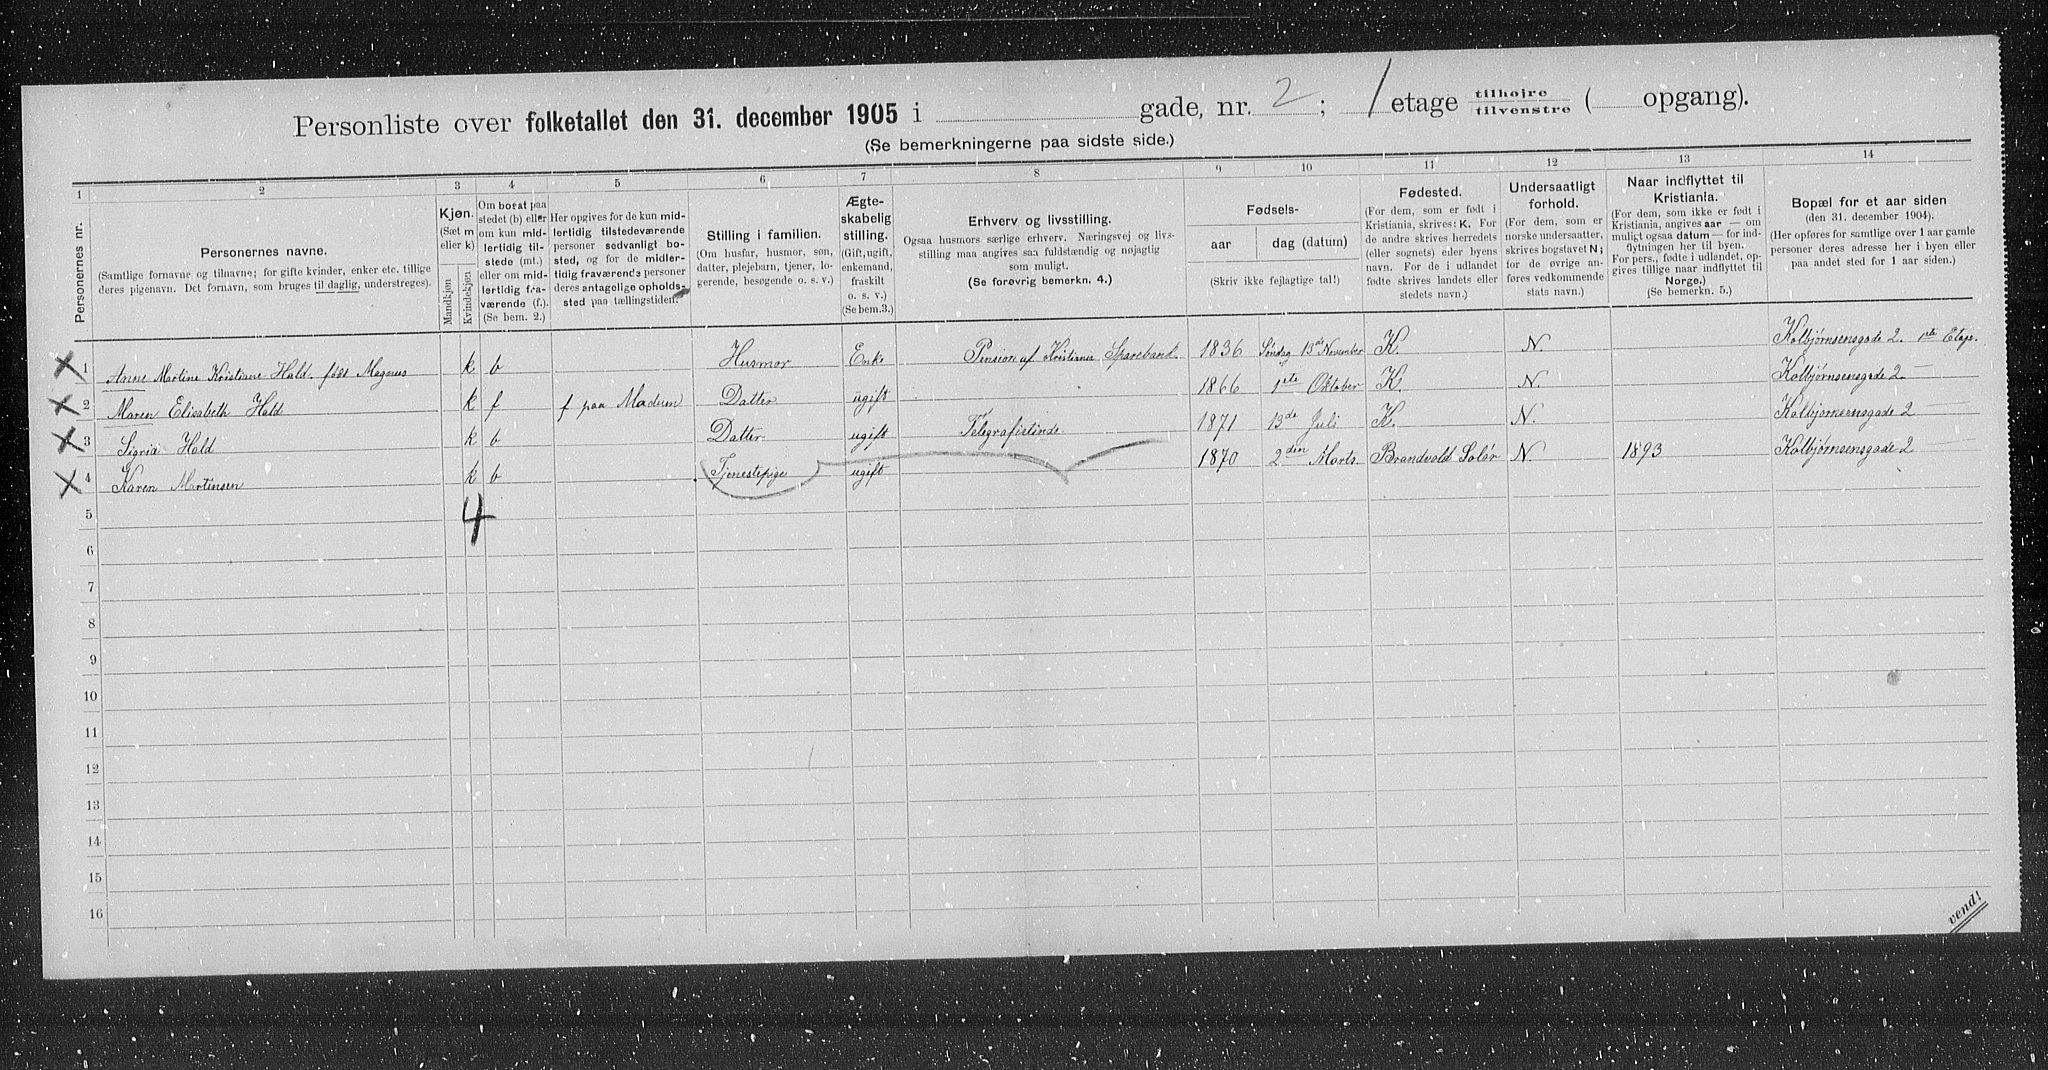 Personliste over folketallet den 31. december 1905 i gade, nr. 2; 1 etage tilhøjre tilvenstre ( opgang).
(Se bemerkningerne paa sidste side.)
1 2 3 4 5 6 7 8 9 10 11 12 13 14
Personernes nr.
Personernes navne.
(Samtlige fornavne og tilnavne; for gifte kvinder, enker etc. tillige
deres pigenavn. Det fornavn, som bruges til daglig, understreges).
Kjøn.
(Sæt m
eller k)
Mandkjøn
Kvindekjøn
Om bosat paa
stedet (b) eller
om kun mid-
lertidig til-
stede (mt.)
eller om mid-
lertidig fra-
værende (f.).
(Se bem. 2.)
Her opgives for de kun mid-
lertidig tilstedeværende
personer sedvanligt bo-
sted, og for de midler-
tidig fraværende personer
deres antagelige opholds-
sted paa tællingstiden.
Stilling i familien.
(Om husfar, husmor, søn,
datter, plejebarn, tjener, lo-
gerende, besøgende o. s. v.)
Ægte-
skabelig
stilling.
(Gift, ugift,
enkemand,
fraskilt
o. s. v.)
(Se bem.3.)
Erhverv og livsstilling.
Ogsaa husmors særlige erhverv. Næringsvej og livs-
stilling maa angives saa fuldstændig og nøjagtig
som muligt.
(Se forøvrig bemerkn. 4.)
Fødsels-
aar dag (datum)
(Skriv ikke fejlagtige tal!)
Fødested.
(For dem, som er født i
Kristiania, skrives: K. For
de andre skrives herredets
(eller sognets) eller byens
navn. For de i udlandet
fødte skrives landets eller
stedets navn.)
Undersaatligt
forhold.
(For dem, som er
norske undersaatter,
skrives bogstavet N;
for de øvrige an-
føres vedkommende
stats navn.)
Naar indflyttet til
Kristiania.
(For dem, som ikke er født i
Kristiania, angives aar — om
muligt ogsaa datum — for ind-
flytningen her til byen.
For pers., fødte i udlandet, op-
gives tillige naar indflyttet til
Norge.)
(Se bemerkn. 5.)
Bopæl for et aar siden
(den 31. december 1904).
(Her opføres for samtlige over 1 aar gamle
personer deres adresse her i byen eller
paa andet sted for 1 aar siden.)
X 1 Anne Martine Kristiane Hald. født Magnus k b Husmor Enke Pension af Kristiania Sparebank. 1836 Søndag 13de November K. N. Kolbjørnsensgade 2. 1ste Etage.
X 2 Maren Elisabeth Hald k f f paa Madum Datter ugift 1866 1ste Oktober K. N. Kolbjørnsensgade 2 —
X 3 Sigrid Hald k b Datter ugift Telegrafistinde 1871 13de Juli K. N. Kolbjørnsensgade 2 —
X 4 Karen Martinsen k b Tjenestepige ugift 1870 2den Marts Brandvold Solør N. 1893 Kolbjørnsensgade 2 —
4
5
6
7
8
9
10
11
12
13
14
15
16
vend!